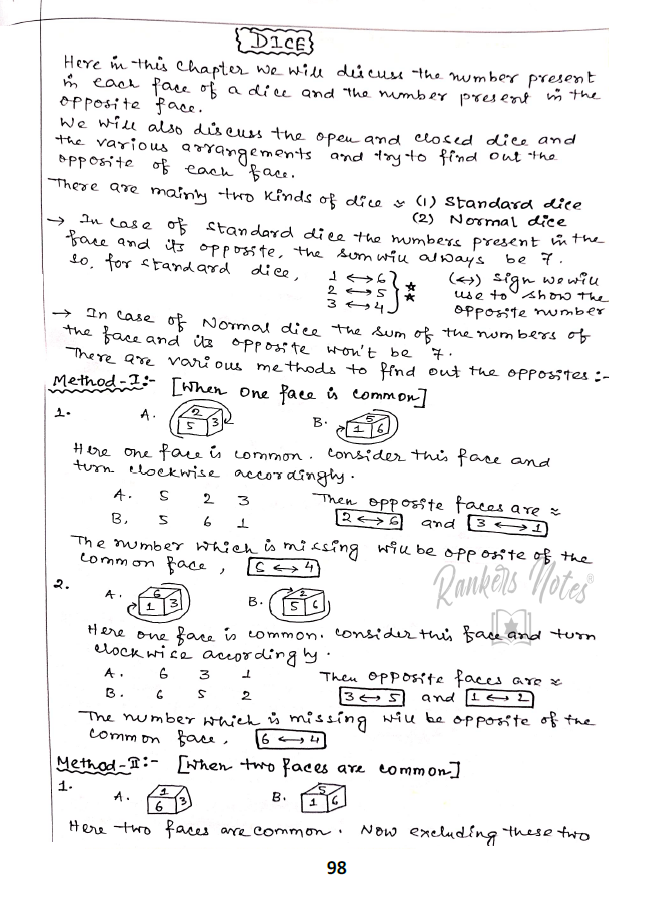 DICE
Here in this chapter we will discuss the number present
in each face of a dice and the number present in the
opposite face.
We will also discuss the open and closed dice and
the various arrangements and try to find out the
opposite of each face.
There are mainly two kinds of dice (1) Standard dice
(2) Normal dice
→ In case of standard dice the numbers present in the
face and its opposite, the sum will always be 7.
so, for standard dice, 1 ↔ 6 (↔) sign we will
2 ↔ 5 use to show the
3 ↔ 4 opposite number
→ In case of Normal dice the sum of the numbers of
the face and its opposite won't be 7.
There are various methods to find out the opposites :-
Method-I:- [When one face is common]
1. A. 2 5 3 B. 5 1 6
Here one face is common. Consider this face and
turn clockwise accordingly.
A. 5 2 3 Then opposite faces are
B. 5 6 1 2 ↔ 6 and 3 ↔ 1
The number which is missing will be opposite of the
common face, 6 ↔ 4
2. A. 6 1 3 B. 2 5 6
Here one face is common. Consider this face and turn
clockwise accordingly.
A. 6 3 1 Then opposite faces are
B. 6 5 2 3 ↔ 5 and 1 ↔ 2
The number which is missing will be opposite of the
common face, 6 ↔ 4
Method-II:- [When two faces are common]
1. A. 1 6 3 B. 5 1 6
Here two faces are common. Now excluding these two
Rankers Notes®
98